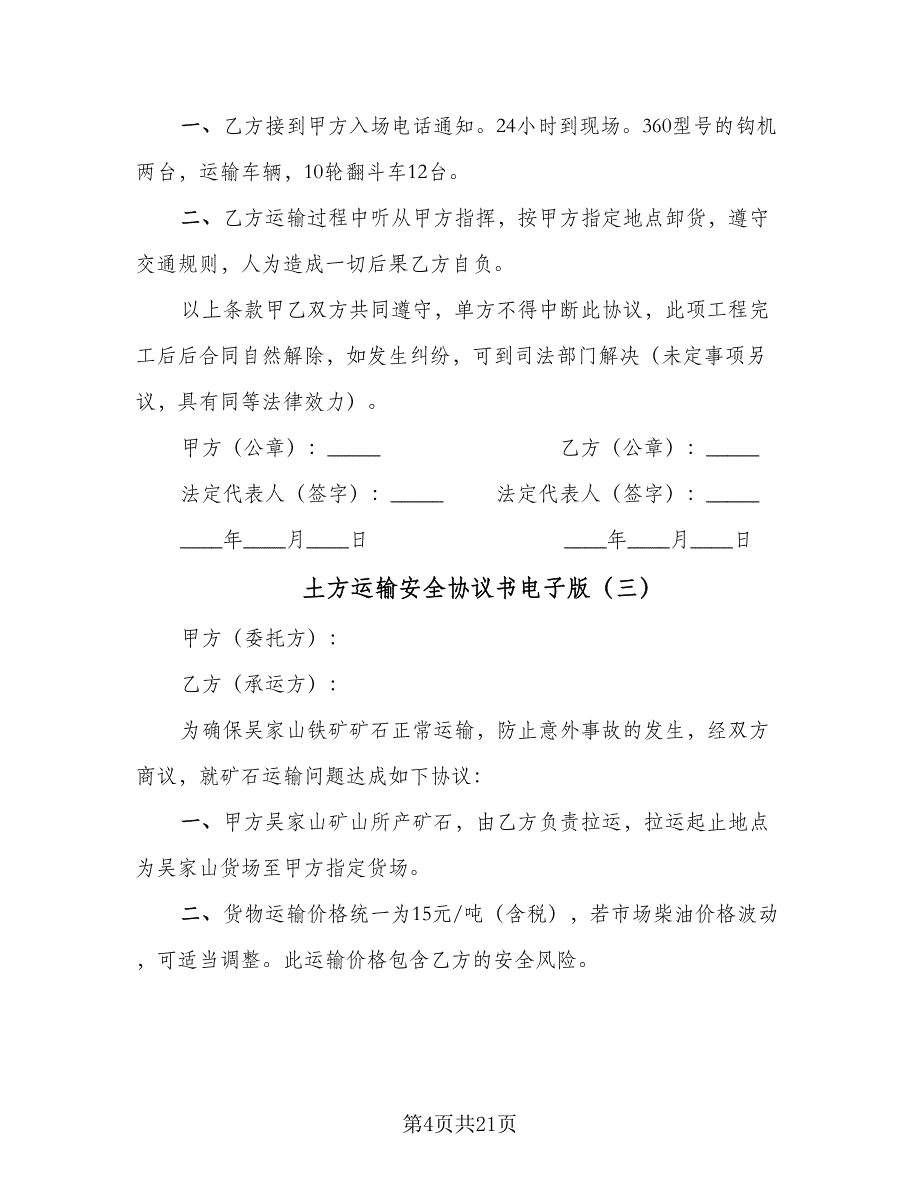 一、乙方接到甲方入场电话通知。24小时到现场。360型号的钩机
两台，运输车辆，10轮翻斗车12台。
二、乙方运输过程中听从甲方指挥，按甲方指定地点卸货，遵守
交通规则，人为造成一切后果乙方自负。
以上条款甲乙双方共同遵守，单方不得中断此协议，此项工程完
工后后合同自然解除，如发生纠纷，可到司法部门解决（未定事项另
议，具有同等法律效力）。
甲方（公章）：_____ 乙方（公章）：_____
法定代表人（签字）：_____ 法定代表人（签字）：_____
____年____月____日 ____年____月____日
土方运输安全协议书电子版（三）
甲方（委托方）：
乙方（承运方）：
为确保吴家山铁矿矿石正常运输，防止意外事故的发生，经双方
商议，就矿石运输问题达成如下协议：
一、甲方吴家山矿山所产矿石，由乙方负责拉运，拉运起止地点
为吴家山货场至甲方指定货场。
二、货物运输价格统一为15元/吨（含税），若市场柴油价格波动
，可适当调整。此运输价格包含乙方的安全风险。
第4页共21页